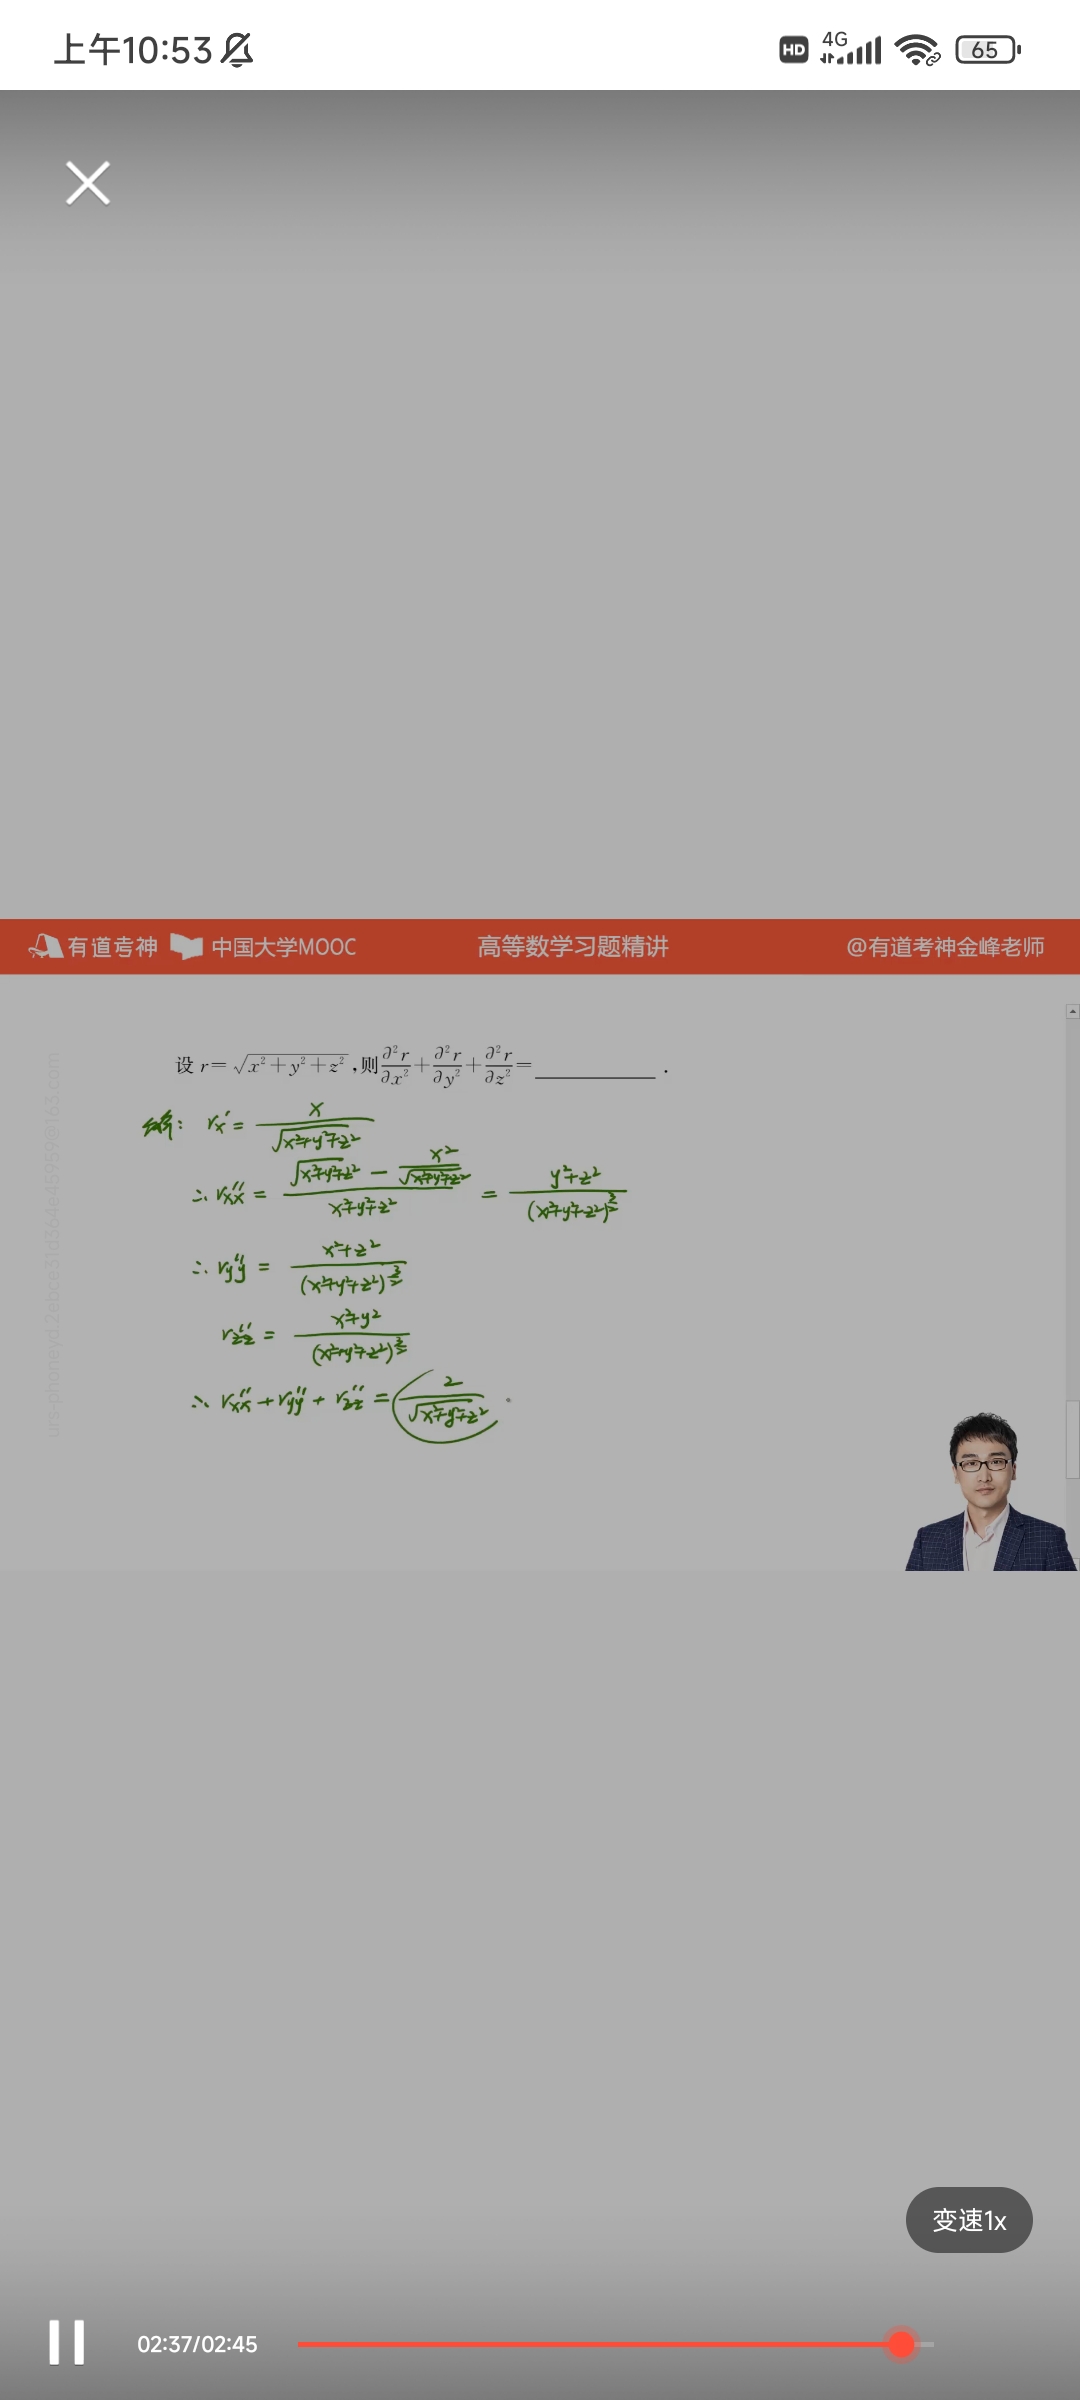 上午10:53 HD 4G 65
有道考神 中国大学MOOC 高等数学习题精讲 @有道考神金峰老师
设 r=√(x²+y²+z²),则∂²r/∂x²+∂²r/∂y²+∂²r/∂z²=____________.
解: rₓ′ = x/√(x²+y²+z²)
∴ rₓₓ″ = (√(x²+y²+z²) − x²/√(x²+y²+z²))/(x²+y²+z²) = (y²+z²)/(x²+y²+z²)^(3/2)
∴ r_yy″ = (x²+z²)/(x²+y²+z²)^(3/2)
r_zz″ = (x²+y²)/(x²+y²+z²)^(3/2)
∴ rₓₓ″ + r_yy″ + r_zz″ = 2/√(x²+y²+z²)
变速1x
02:37/02:45